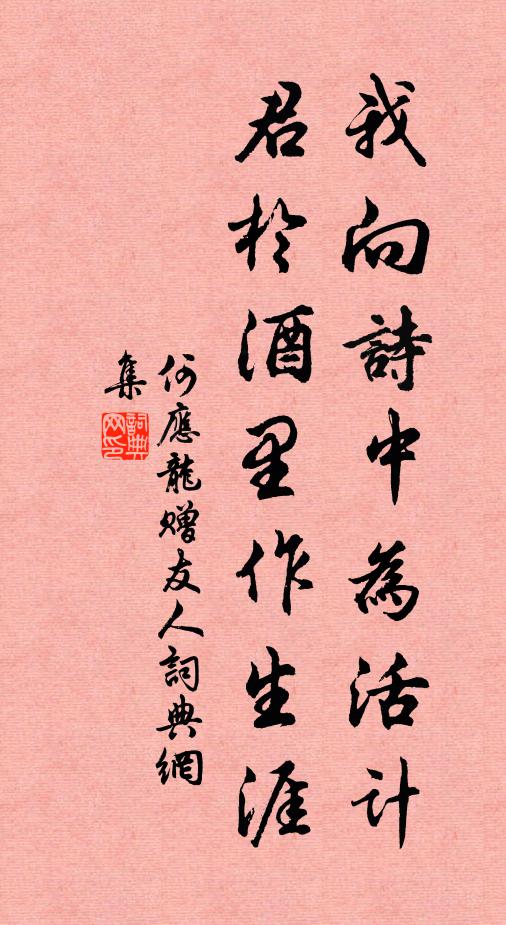 我向詩中為活計
君於酒里作生涯
何應龍贈友人詞典網
集
詞典
网印